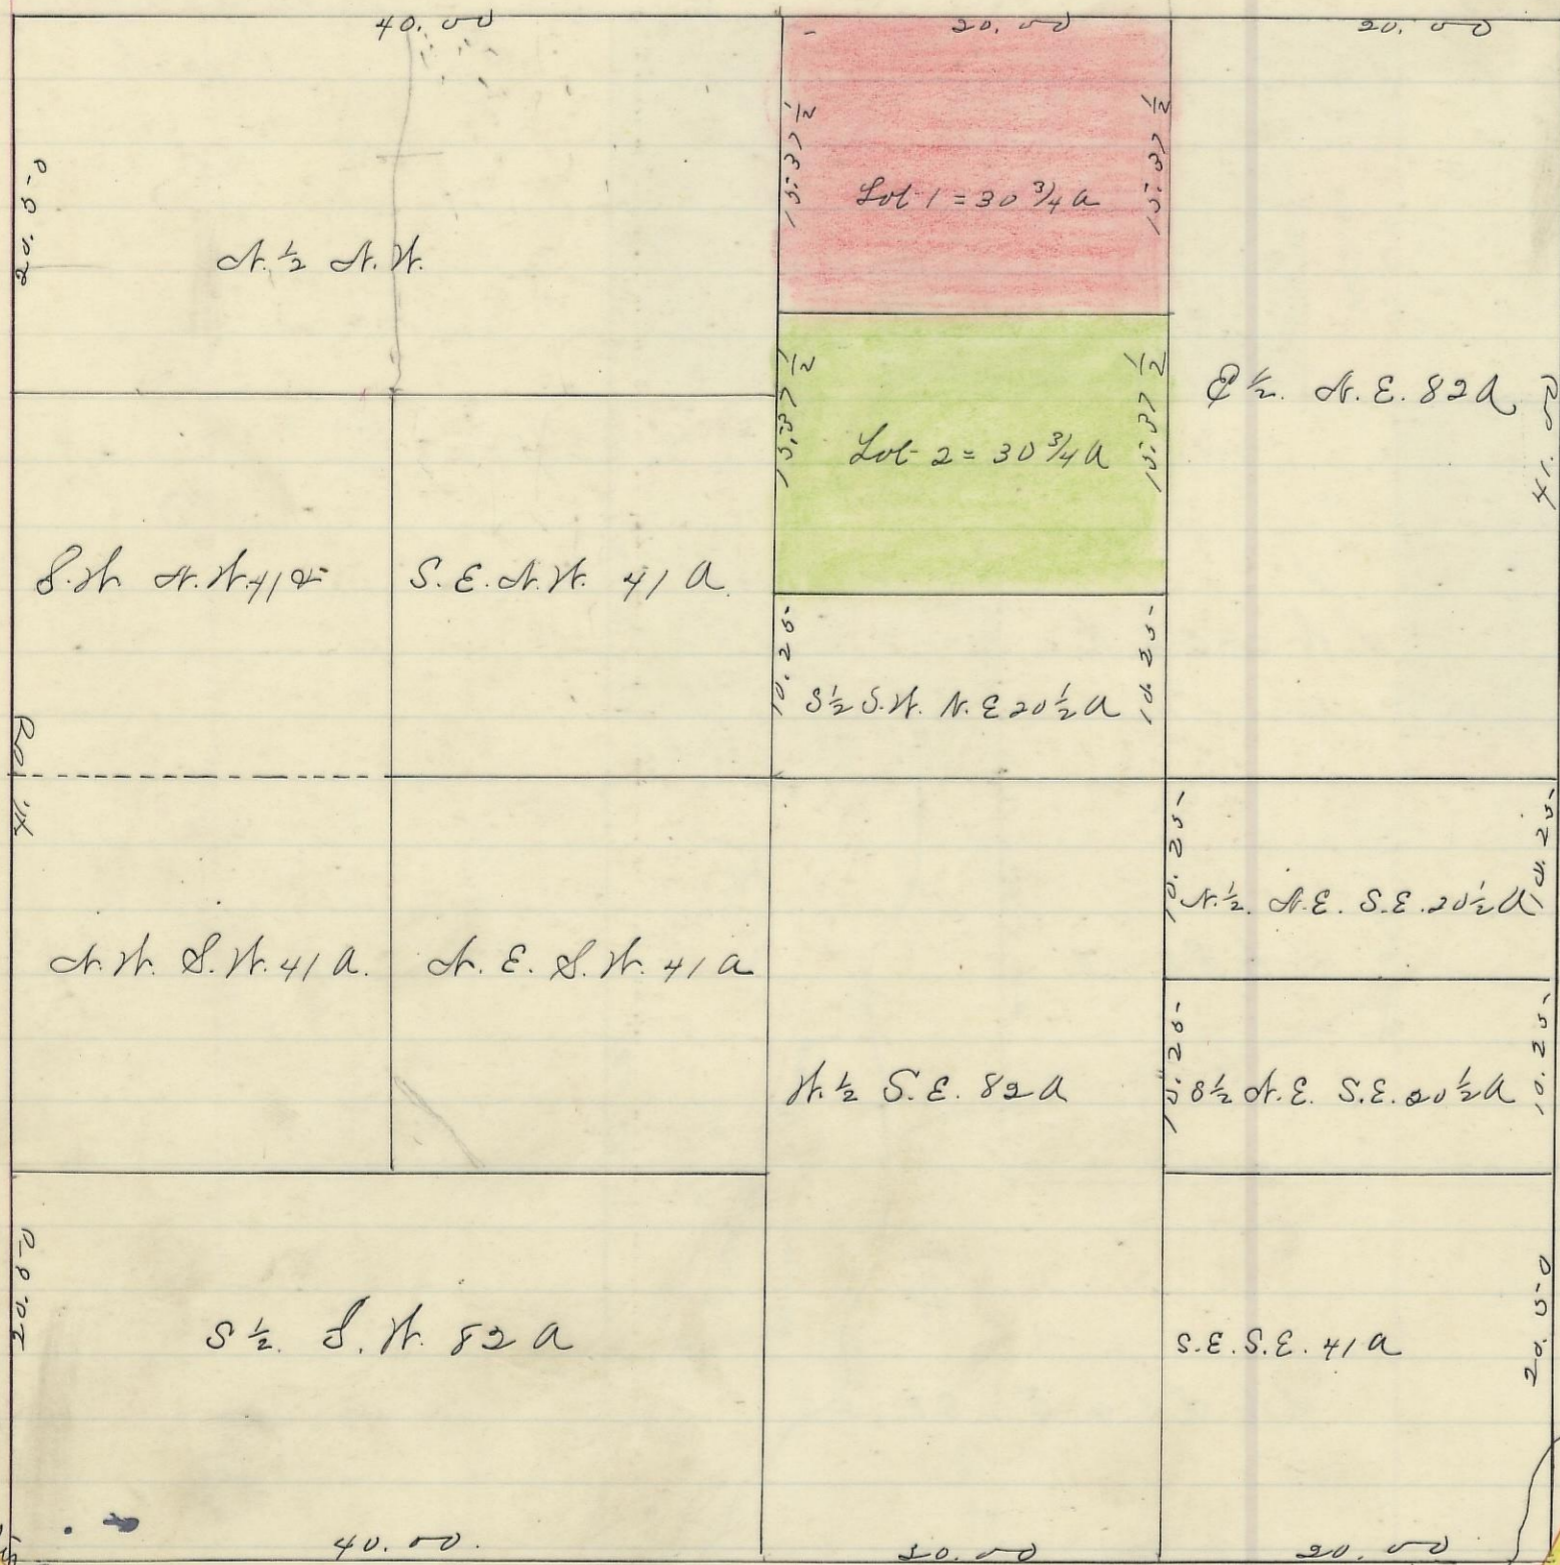 40.00
20.00
20.00
20.50
N. ½ N.W.
15.37 ½
Lot 1 = 30 ¾ a
15.37 ½
15.37 ½
Lot 2 = 30 ¾ a
15.37 ½
E ½. N.E. 82 a
41.00
S.W. N.W. 41 a
S.E. N.W. 41 a.
10.25
S ½ S.W. N.E 20 ½ a
10.25
41.00
N.W. S.W. 41 a.
N.E. S.W. 41 a
W. ½ S.E. 82 a
10.25
N. ½. N.E. S.E. 20 ½ a
10.25
10.25
S ½ N.E. S.E. 20 ½ a
10.25
20.50
S ½. S.W. 82 a
S.E. S.E. 41 a
20.50
40.00.
20.00
20.00